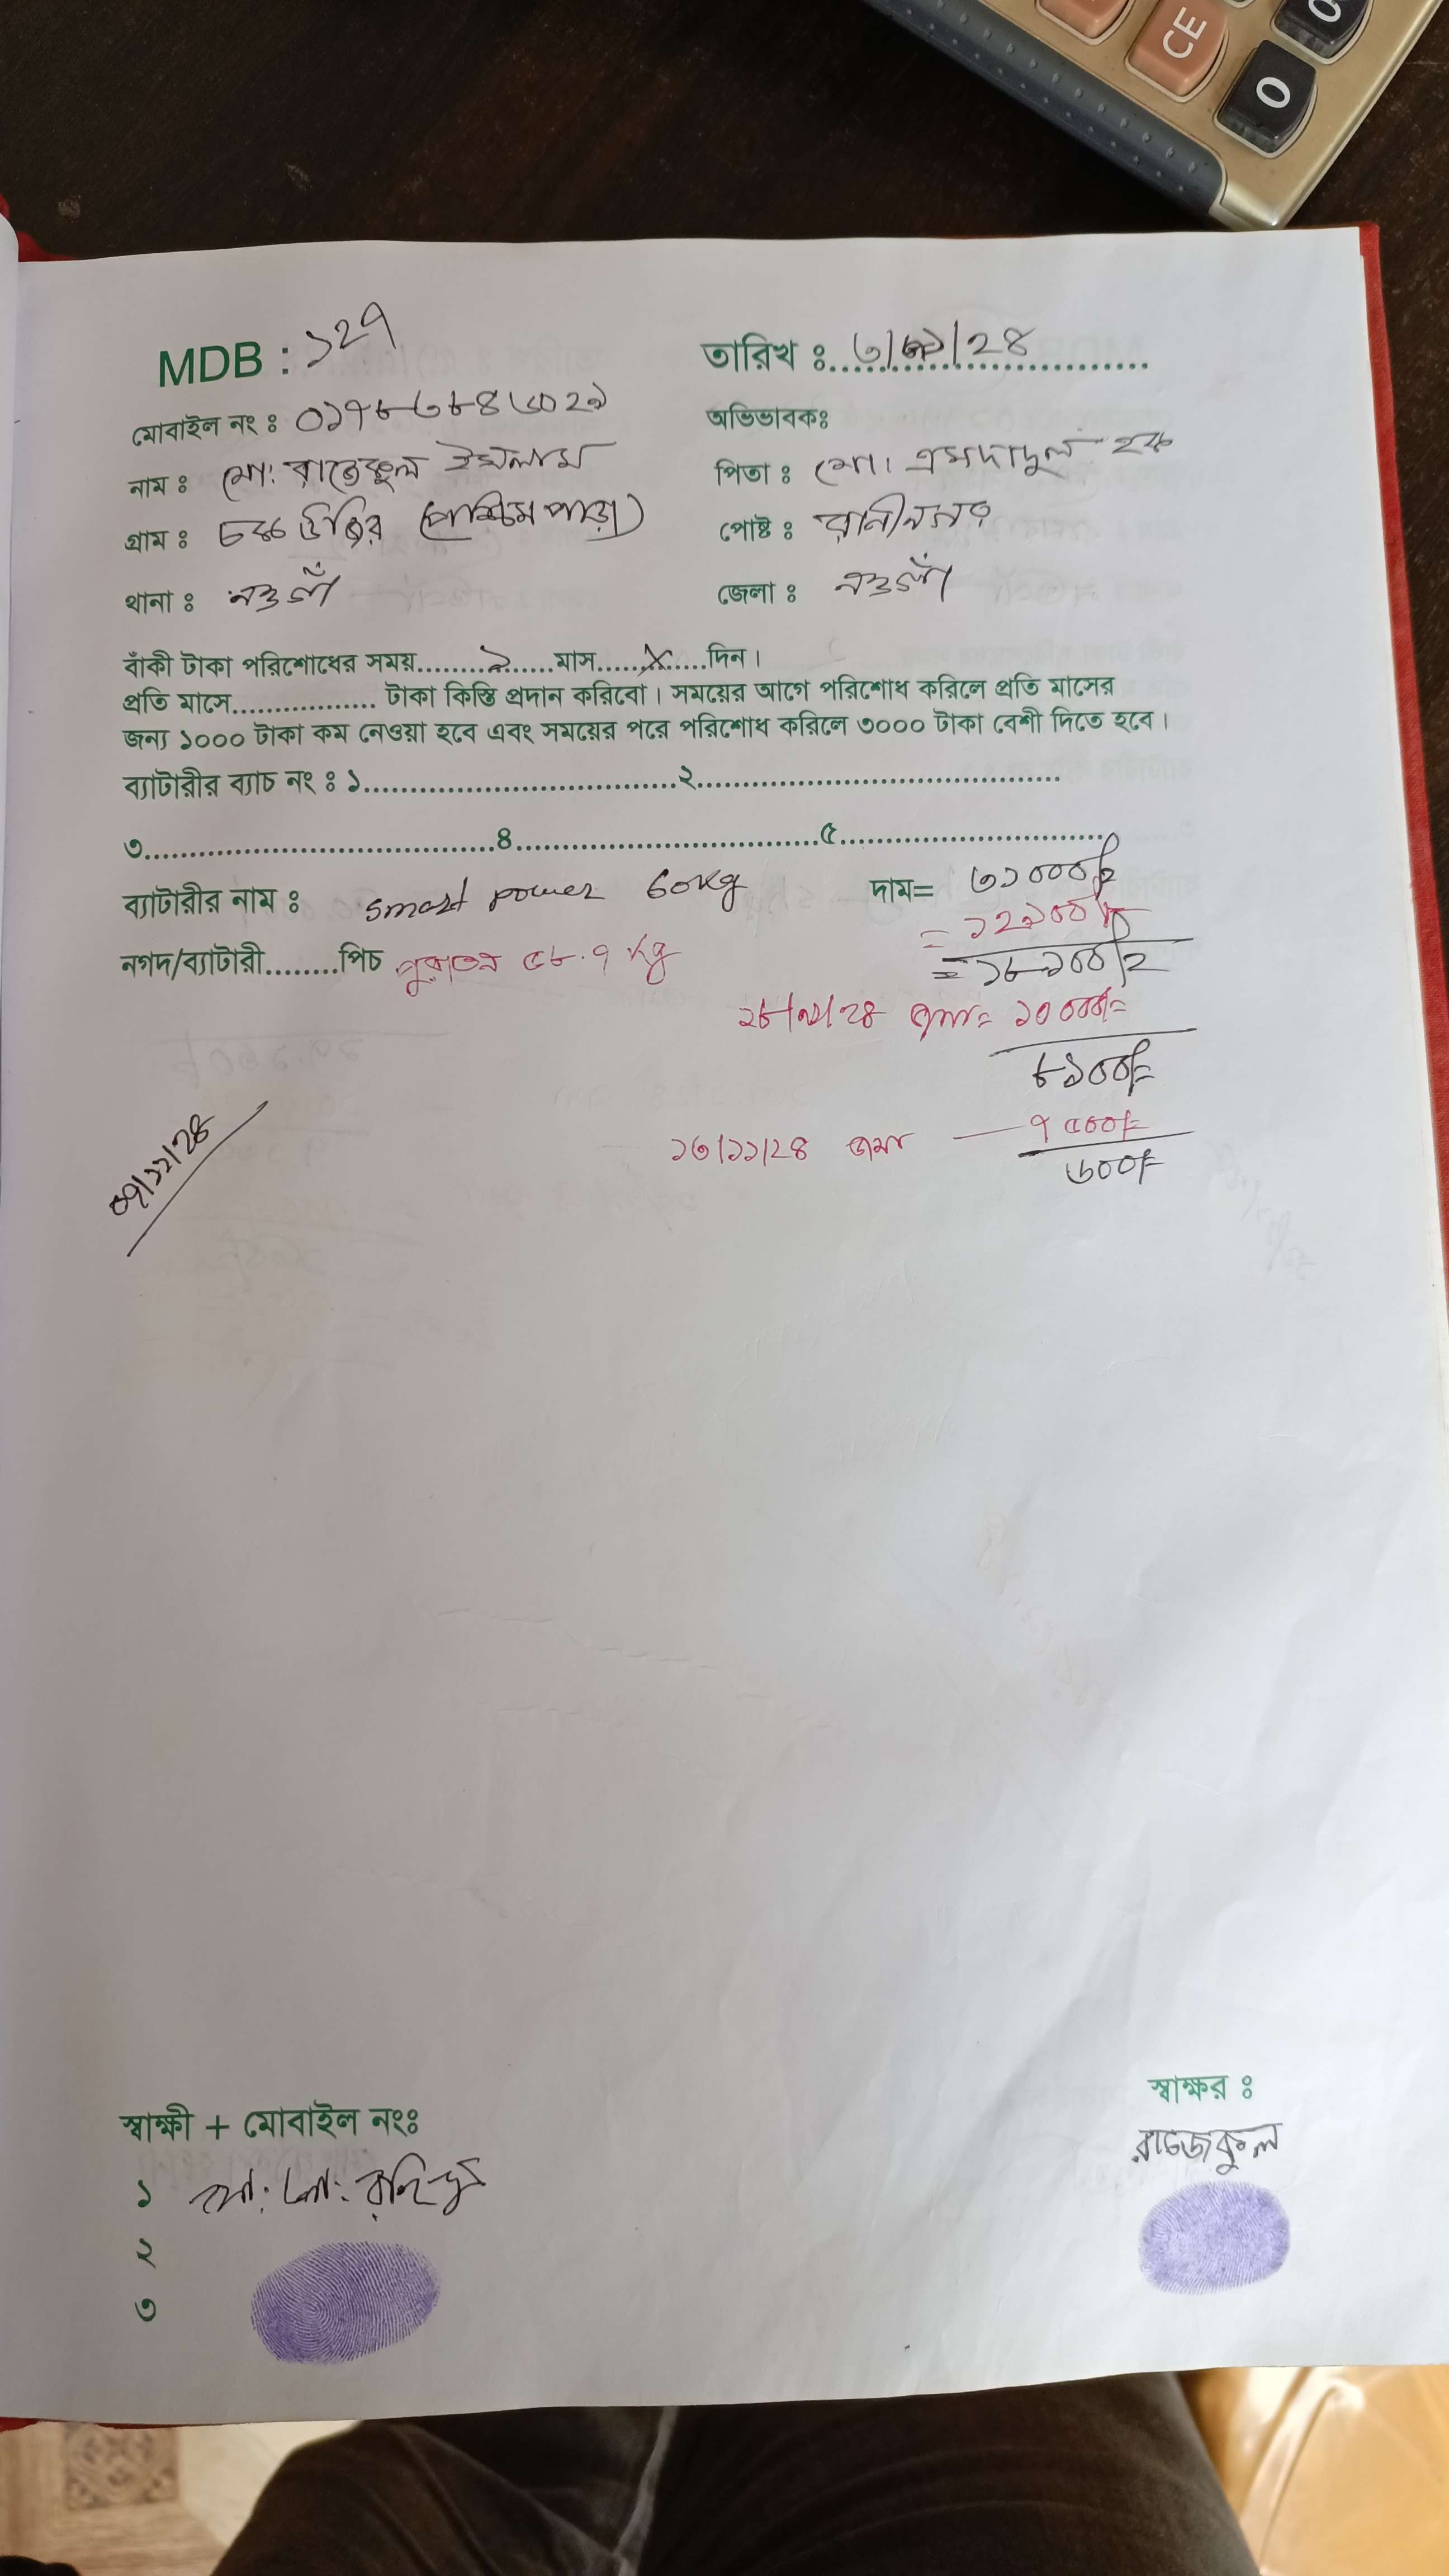 CE
0
MDB : ১২৭
তারিখ ঃ ৩/৯/২৪
মোবাইল নং ঃ ০১৭৮৩৮৪৬০২৯
অভিভাবকঃ
নাম ঃ মো: রাজেকুল ইসলাম
পিতা ঃ মো: এমদাদুল হক
গ্রাম ঃ চকউজির (পশ্চিম পাড়া)
পোষ্ট ঃ রানীনগর
থানা ঃ নওগাঁ
জেলা ঃ নওগাঁ
বাঁকী টাকা পরিশোধের সময়........২......মাস......X......দিন।
প্রতি মাসে................. টাকা কিস্তি প্রদান করিবো। সময়ের আগে পরিশোধ করিলে প্রতি মাসের
জন্য ১০০০ টাকা কম নেওয়া হবে এবং সময়ের পরে পরিশোধ করিলে ৩০০০ টাকা বেশী দিতে হবে।
ব্যাটারীর ব্যাচ নং ঃ ১..................................২........................................
৩......................................৪.................................৫.............................
ব্যাটারীর নাম ঃ smart power 60kg দাম= ৩১০০০/=
= ১২৯০০/=
নগদ/ব্যাটারী........পিচ পুরাতন ৫৮.৭ kg = ১৮১০০/=
২৮/৯/২৪ জমা= ১০০০০/=
৮১০০/=
১৩/১১/২৪ জমা — ৭৫০০/=
৬০০/=
০৭/১২/২৪
স্বাক্ষর ঃ
রাজেকুল
স্বাক্ষী + মোবাইল নংঃ
১
২
৩